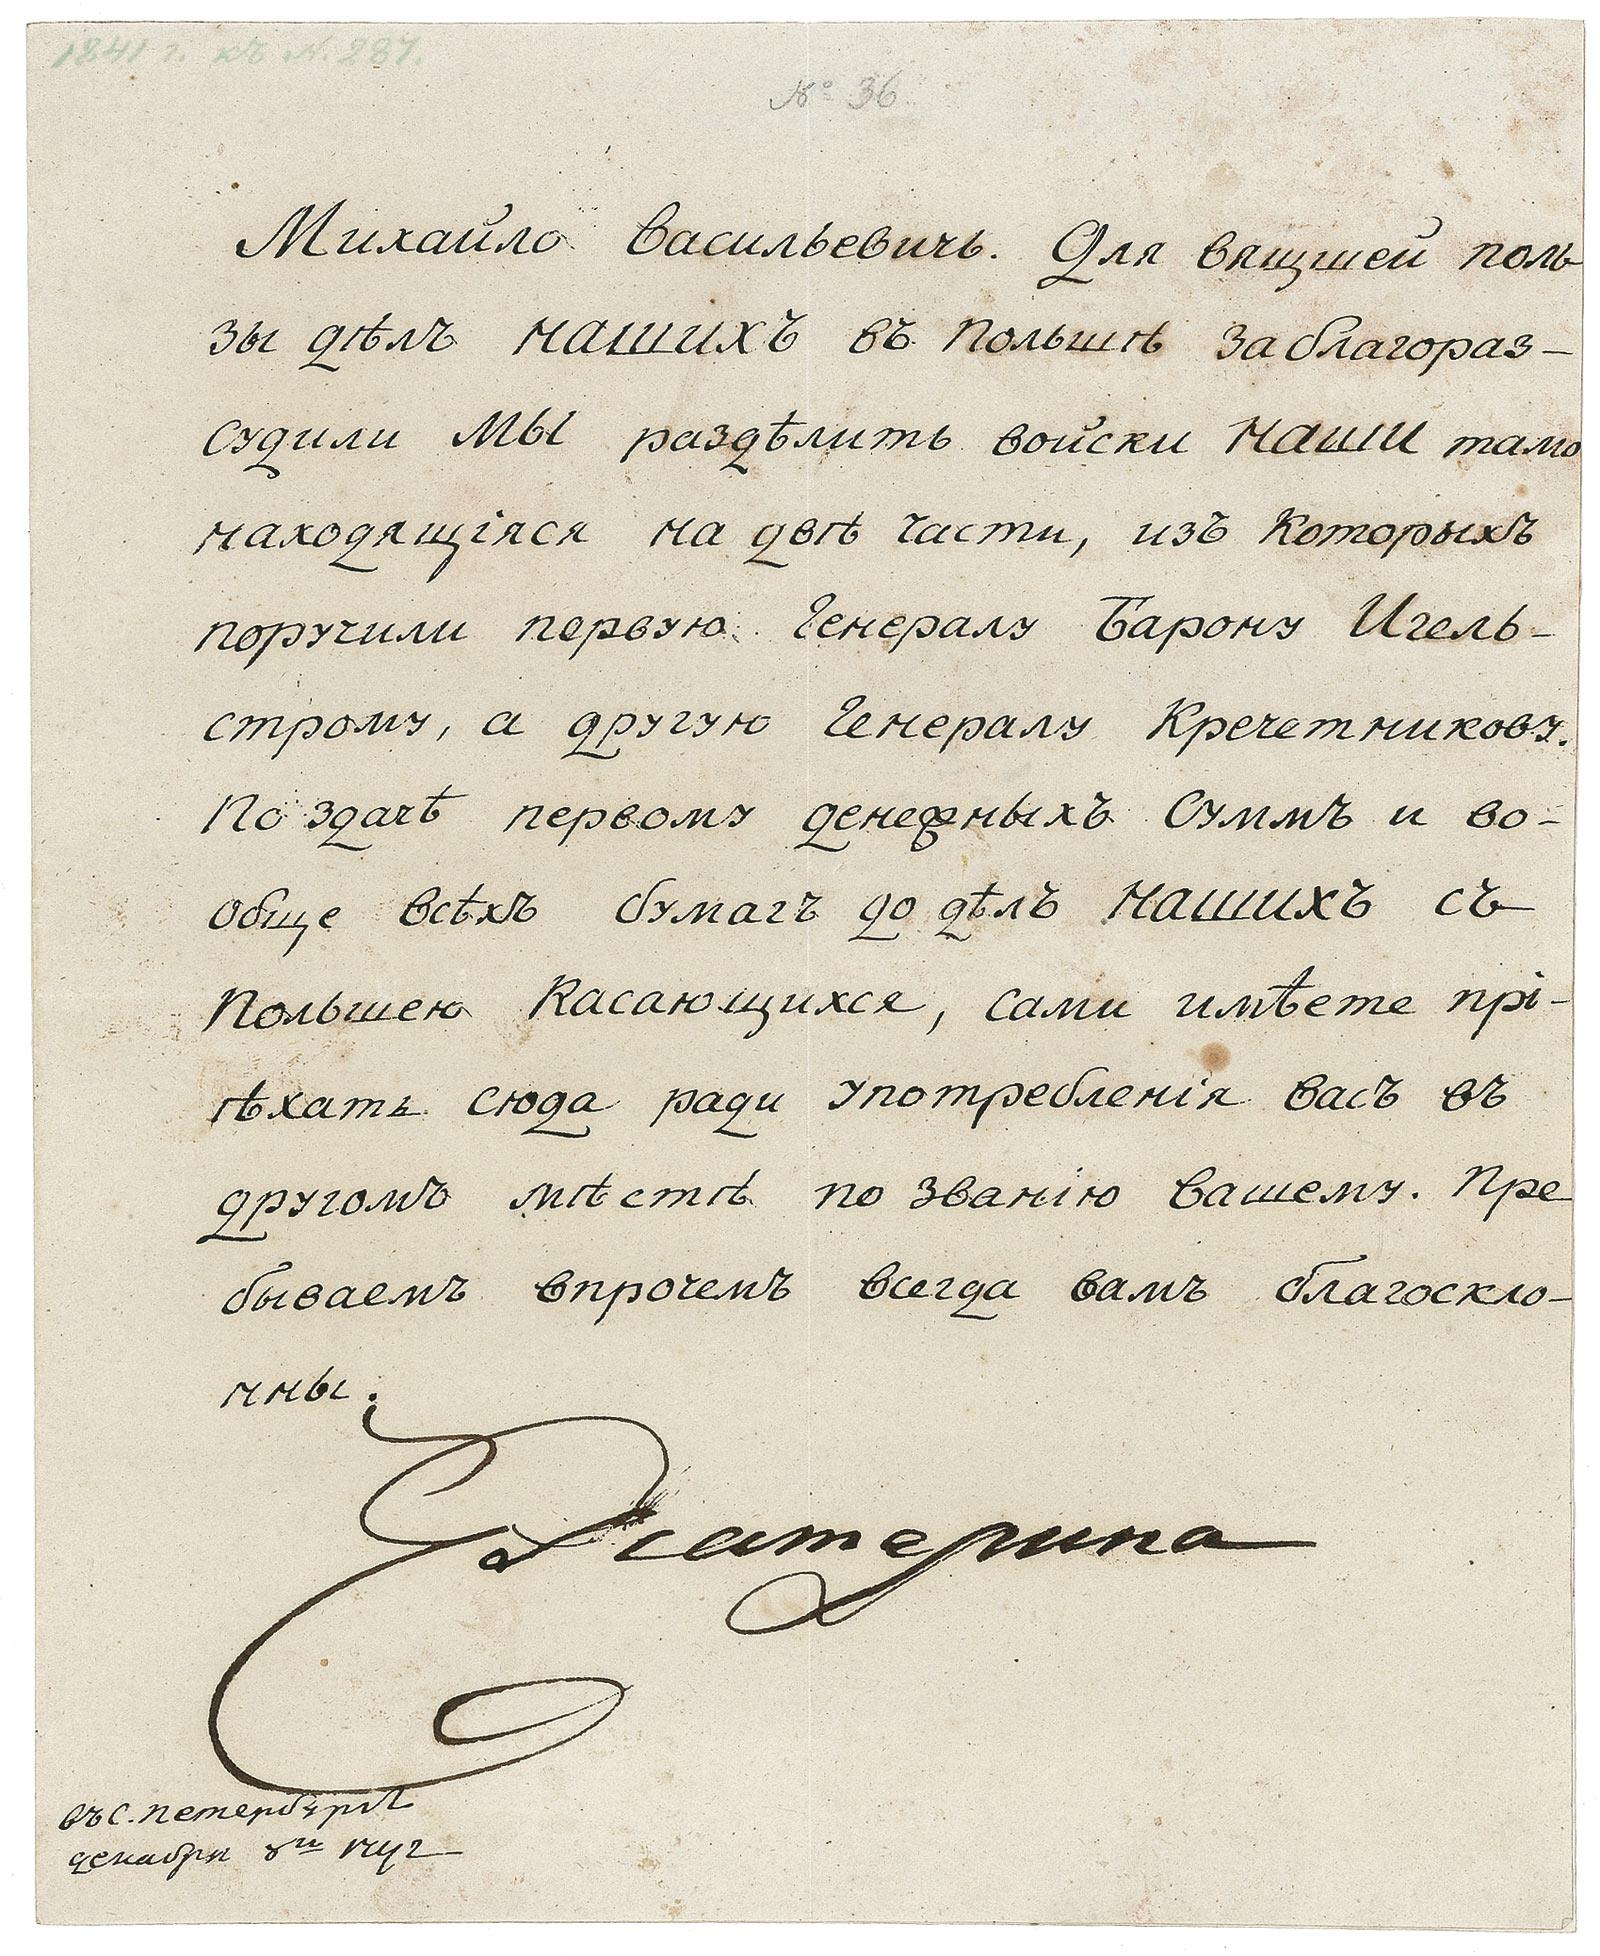 1841 г. къ N. 287.
№ 36
Михайло Васильевичь. Для вящшей поль
зы дѣлъ НАШИХЪ въ Польшѣ заблагораз-
судили МЫ раздѣлить войски НАШИ тамо
находящіяся на двѣ части, изъ которыхъ
поручили первую Генералу Барону Игель-
строму, а другую Генералу Кречетникову.
По здачѣ первому денежныхъ суммъ и во-
обще всѣхъ бумагъ до дѣлъ НАШИХЪ съ
Польшею касающихся, сами имѣете прі-
ѣхать сюда ради употребленія васъ въ
другомъ мѣстѣ по званію вашему. Пре
бываемъ впрочемъ всегда вамъ благоскло-
нны.
Екатерина
въ С. Петербургѣ
декабря 8го 1792